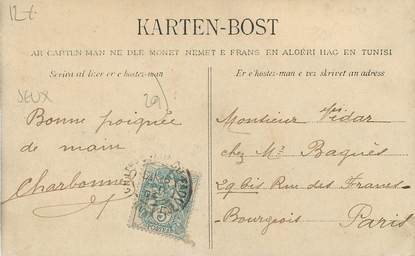 12+
KARTEN-BOST
AR CARTEN MAN NE DLE MONET NEMET E FRANS EN ALGÉRI HAG EN TUNISI
Scriva al lizer er c'hostez-man
Er c'hostez-man e vez skrivet an adress
SEUX
29
Bonne poignée
de main
Charbonne
5
Monsieur Vidar
chez Mr Baguès
29 bis Rue des Francs-
Bourgeois
Paris